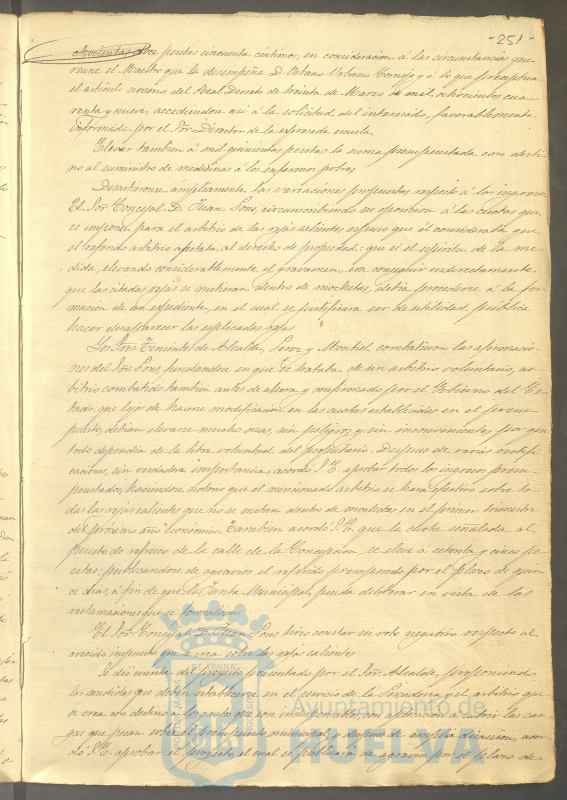 -251-
Novecientas doce pesetas cincuenta céntimos, en consideracion á las circunstancias que
reune el Maestro que la desempeña D. Urbano Conejo y á lo que preceptua
el artículo noveno del Real Decreto de treinta de Marzo de mil ochocientos cua
renta y nueve, accediendose asi á la solicitud del interesado, favorablemente
informada por el Sor Director de la espresada escuela.
Elevar tambien á mil quinientas pesetas la suma presupuestada con desti
no al suministro de medicinas a los enfermos pobres
Discutieronse ampliamente las variaciones propuestas respecto á los ingresos
El Sor Concejal D. Juan Pons, circunscribiendo su oposicion á las cuotas que
se imponen para el arbitrio de las rejas salientes espuso que él consideraba que
el referido arbitrio afectaba al derecho de propiedad: que si el espiritu de la me
dida, elevando considerablemente el gravamen, era conseguir indirectamente
que las citadas rejas se metieran dentro de mochetas, debia procederse á la for
macion de un expediente, en el cual se justificara ser de utilidad publica
hacer desaparecer las esplicadas rejas
Los Sres Tenientes de Alcalde, Perez y Montiel combatieron las apreciacio
nes del Sor Pons, fundandose en que se trataba de un arbitrio voluntario, ar
bitrio combatido tambien antes de ahora y confirmado por el Gobierno del Es
tado: que lejos de hacerse modificacion en las cuotas establecidas en el presu
puesto, debian elevarse mucho mas, sin peligro y sin inconvenientes por que
todo dependia de la libre voluntad del propietario. Despues de varias rectifi
caciones, sin verdadera importancia, acordó S. E. aprobar todos los ingresos presu
puestados, haciendose notorio que el mencionado arbitrio se hara efectivo sobre to
das las rejas salientes que no se metan dentro de mochetas en el primer trimestre
del próximo año economico. Tambien acordó S. E. que la cuota señalada al
puesto de refresco de la calle de la Concepcion, se eleve a setenta y cinco pe
setas; publicandose de agravios el referido presupuesto por el plazo de quin
ce dias, á fin de que la Junta Municipal, pueda deliberar en vista de las
reclamaciones que se formulen.
El Sor Concejal D. Juan Pons hizo constar su voto negativo respecto al
crecido impuesto que se crea sobre las rejas salientes
Se dió cuenta del proyecto presentado por el Sor Alcalde, proponiendo
las medidas que deben establecerse en el servicio de la Panaderia y el arbitrio que
se crea con destino a los gastos que son indispensables, con aplicacion á cubrir las car
gas que pesan sobre el presupuesto municipal, y despues de amplia discusion, acor
dó S. E. aprobar el proyecto, el cual se publicará de agravios por el plazo de
Ayuntamiento de
HUELVA